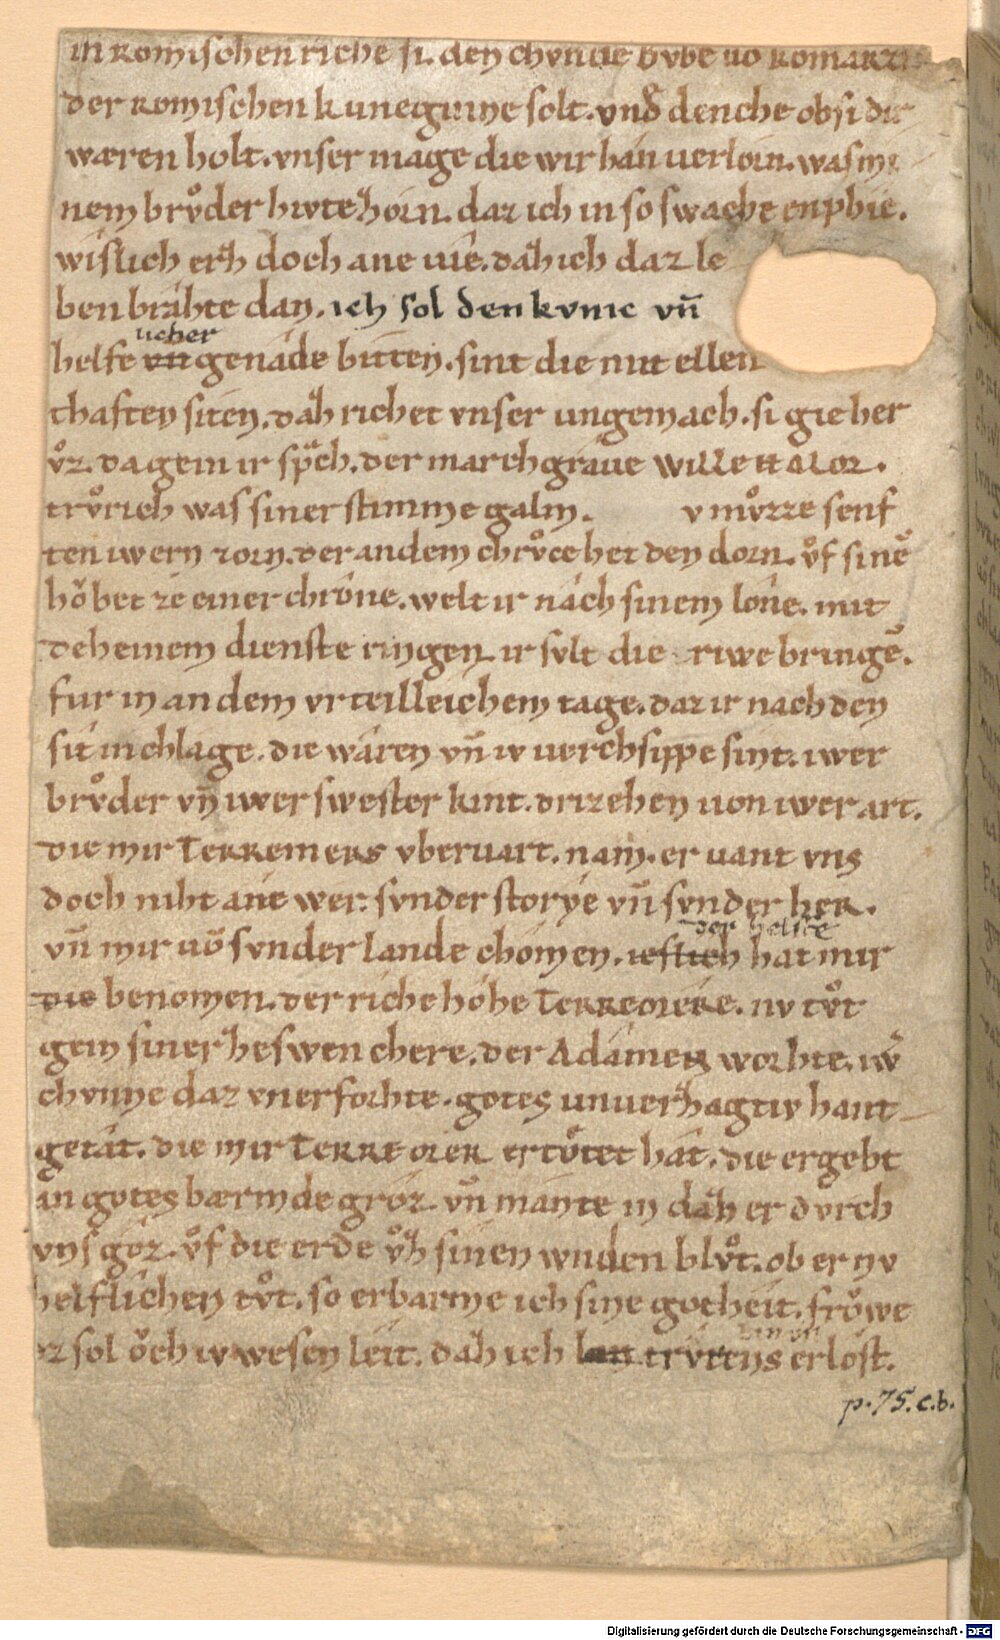 in romischen riche si. den chvnde bvbe uo romarzi
der romischen kuneginne solt. vnd̄ denche ob si dir
wæren holt. vnser mage die wir han uerlorn. was mi
nem brv̊der hivte horn. daz ich in so swache enphie.
wislich erh doch ane uie. dāh ich daz le
ben brahte dan. ich sol den kvnic vn̄
ucher
helfe vn̄ genade bitten. sint die mit ellen
thaften siten. dāh richet vnser ungemach. si gie her
v̊z. da gein ir sp̄ch. der marchgraue willettalor.
trv̊rich was siner stimme galm. v mv̊zze senf
ten iwern zorn. der an dem chrv̊ce het den dorn. v̊f sinē
hȯbet ze einer chrône. welt ir nâch sinem lône. mit
deheinem dienste ringen. ir svlt die riwe bringē.
fur in an dem vrteilleichem tage. daz ir nach den
sit in chlage. die wâren vn̄ iv uerchsippe sint. iwer
brv̊der vn̄ iwer swester kint. drizehen uon iwer art.
die mir Terremers vberuart. nam. er uant vns
doch niht ane wer. svnder storye vn̄ svnder her.
der helfe
vn̄ mir uō svnder lande chomen. ieslich hat mir
die benomen. der riche hôhe Terremere. nv tv̊t
gein siner heswen chere. der Adamen worhte. iw̄
chvnne daz vnerforhte. gotes unuerhagtiv hant
getât. die mir Terremer ertôtet hât. die ergebt
an gotes bærmde grôz. vn̄ mante in dāh er dvrch
vns gôz. v̊f die erde v̊h sinen wnden blv̊t. ob er nv
helflichen tv̊t. so erbarme ich sine gotheit. frôwe
ez sol ôch iv wesen leit. dāh ich lan trvrens erlost.
bin un
p. 75. c. b.
Digitalisierung gefördert durch die Deutsche Forschungsgemeinschaft - DFG